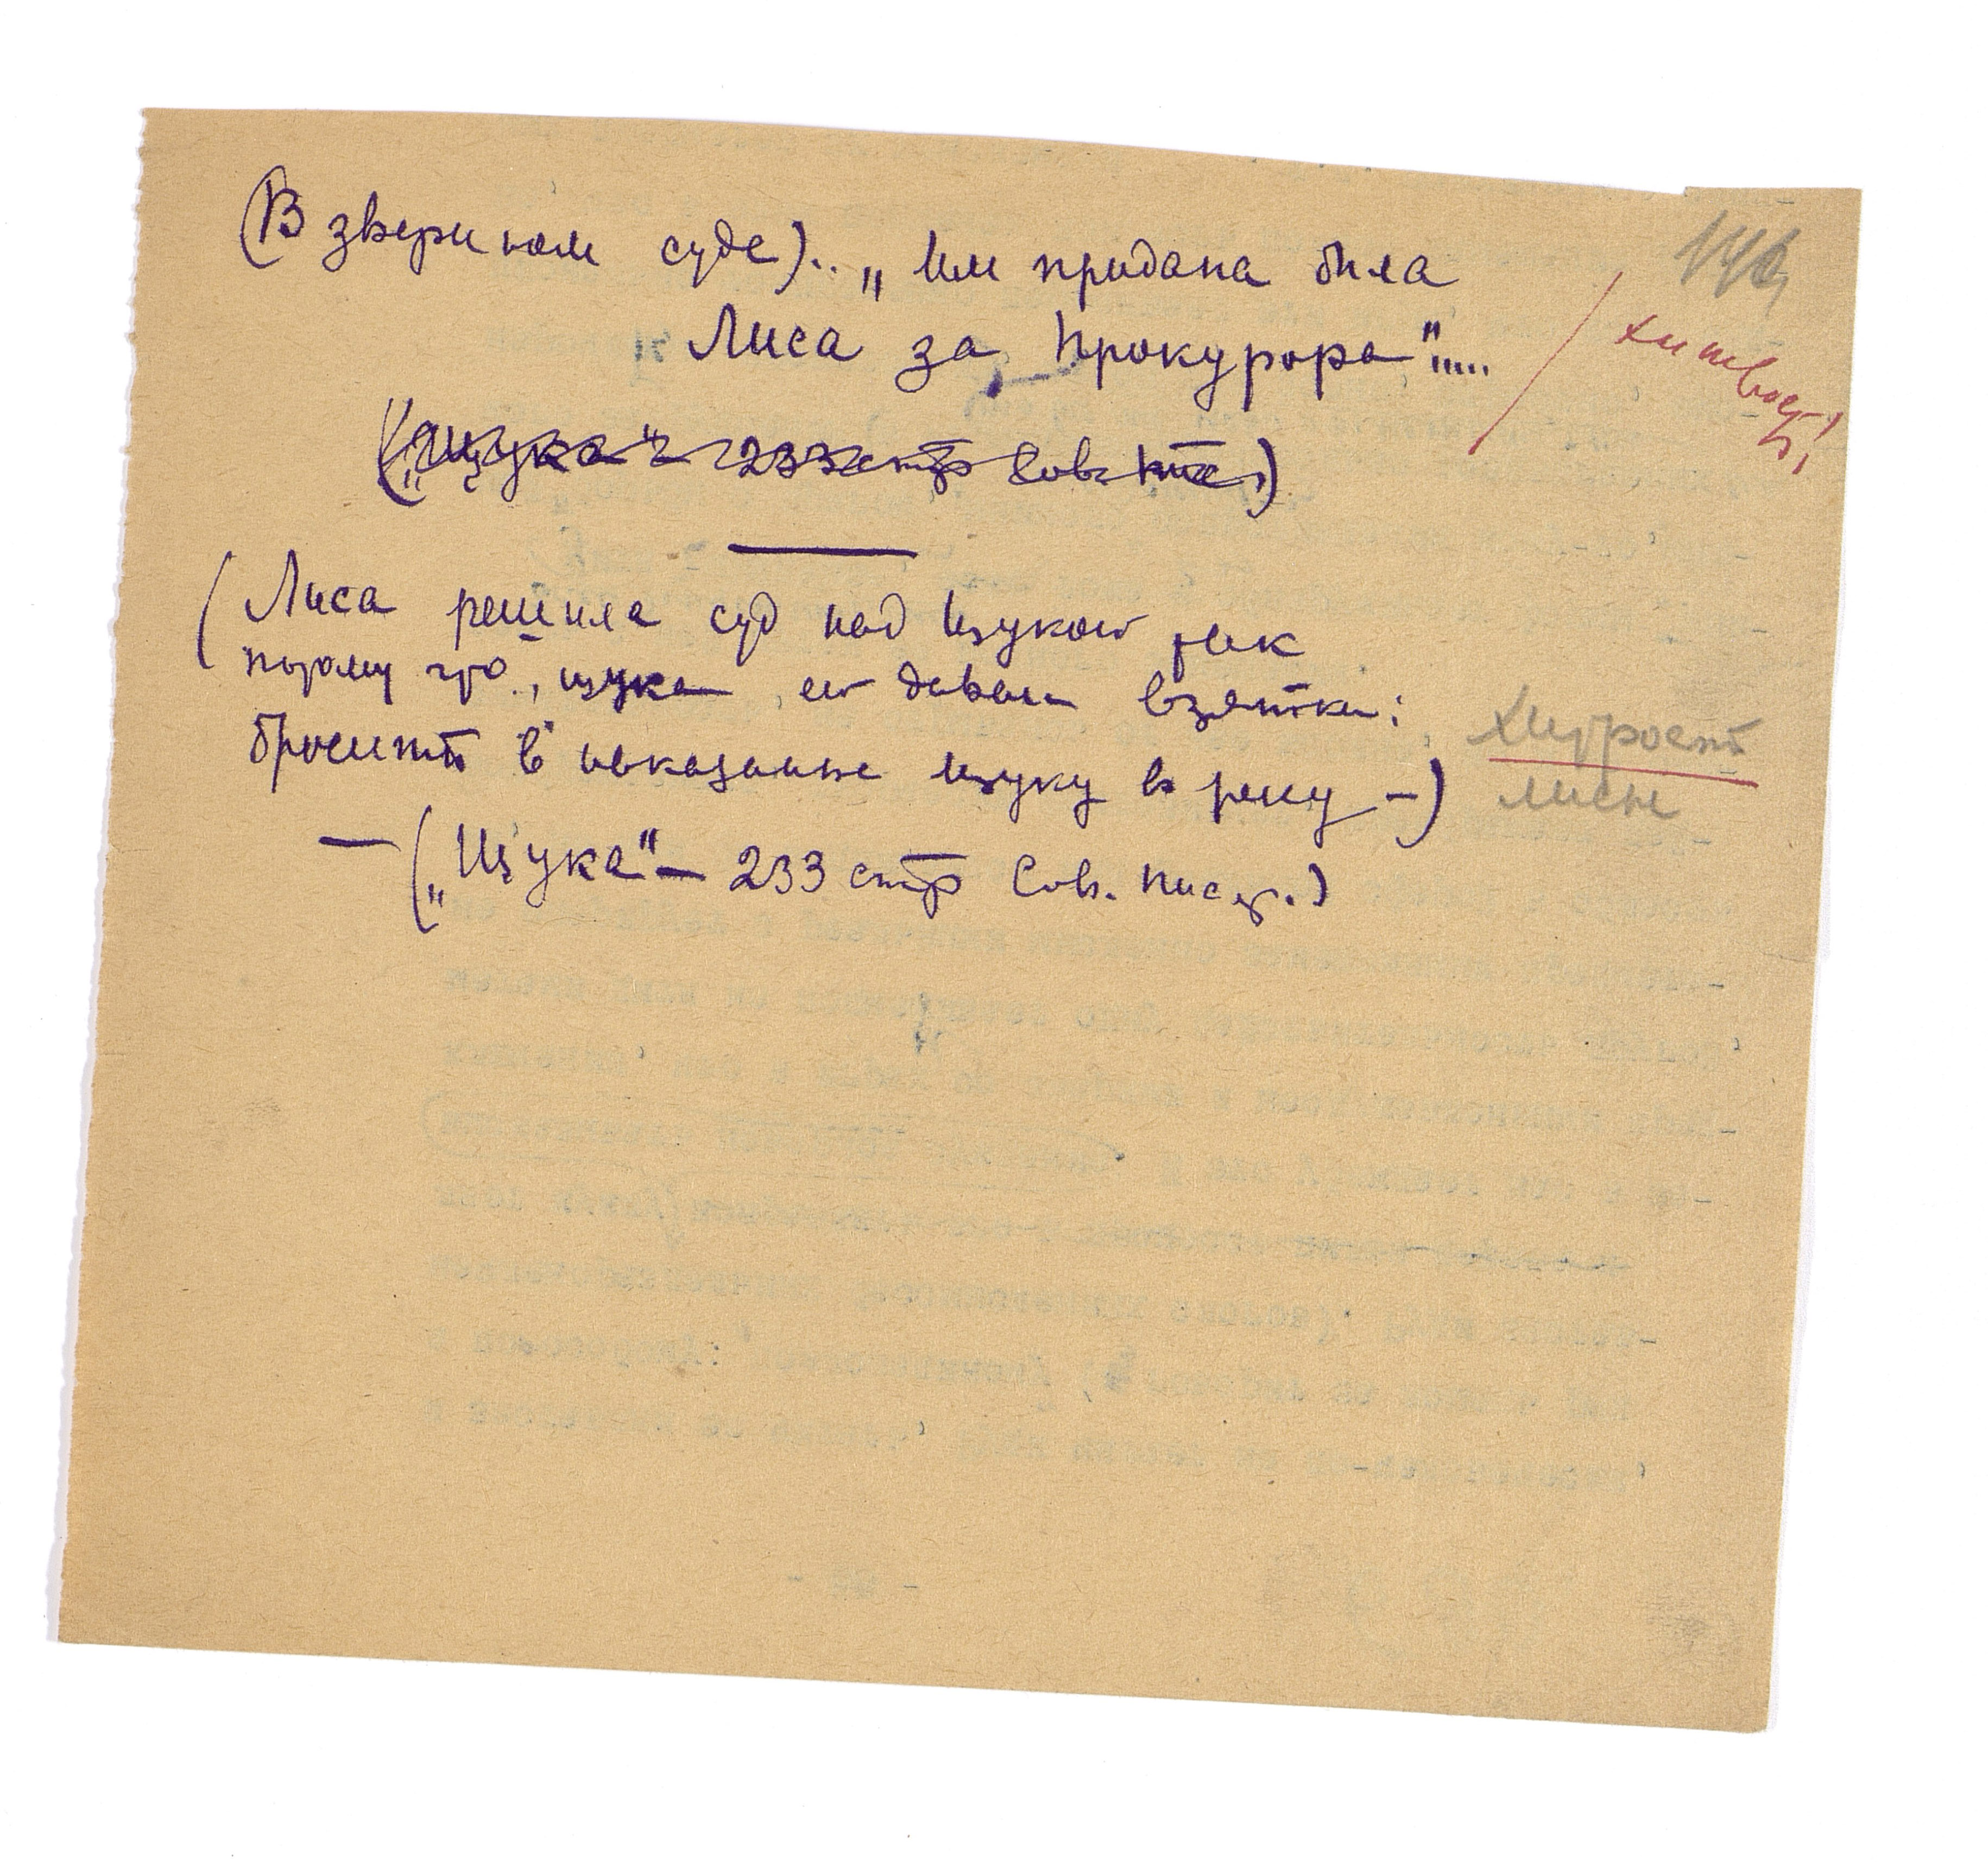 (В зверином суде).. „Им придана была
Лиса за Прокурора".....
(„Щука" 233 стр Сов.
(Лиса решила суд над Щукой так
потому что, щука ей давала взятки:
бросить в наказанье щуку в реку –)
хитрость
лисы
– („Щука" – 233 стр Сов. писат.)